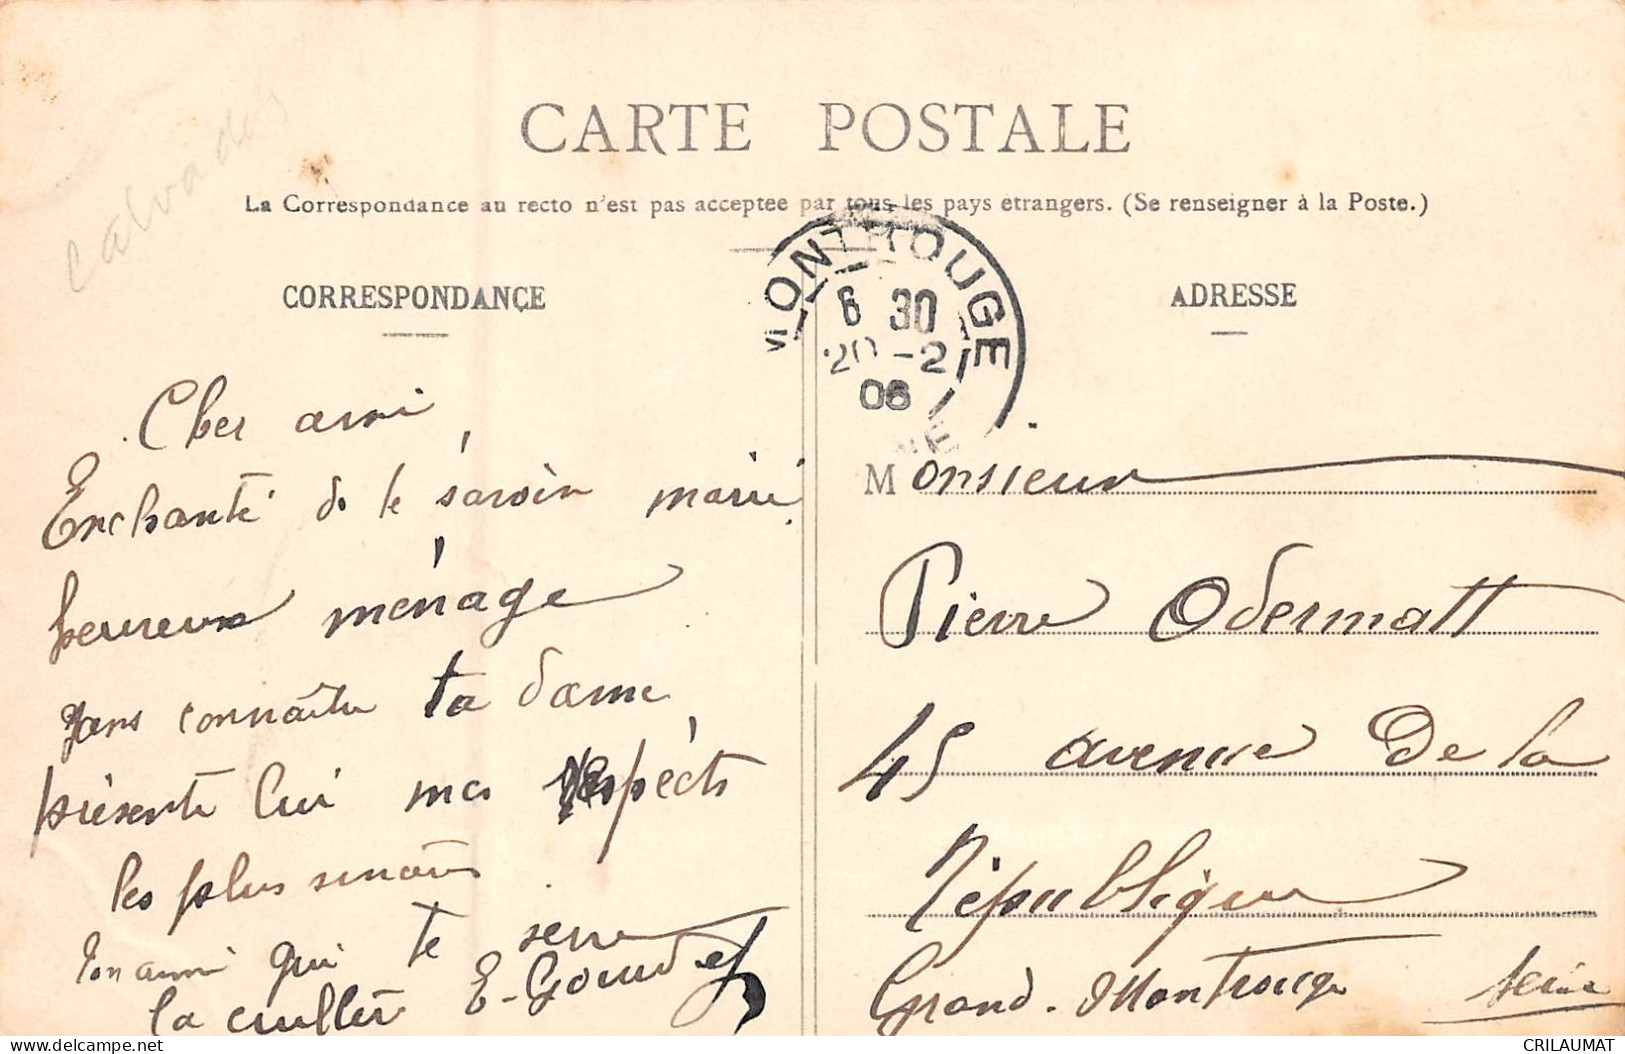 calvados
CARTE POSTALE
La Correspondance au recto n'est pas acceptée par tous les pays étrangers. (Se renseigner à la Poste.)
CORRESPONDANCE
Cher ami
Enchanté de te savoir marié
heureux ménage
sans connaître ta dame
présente lui mes respects
les plus sincères
Ton ami qui te serre
la cuillère E. Goudet
MONTROUGE
6 30
20 -2
06
ADRESSE
Monsieur
Pierre Odermatt
45 avenue De la
République
Grand-Montrouge Seine
delcampe.net
CRILAUMAT